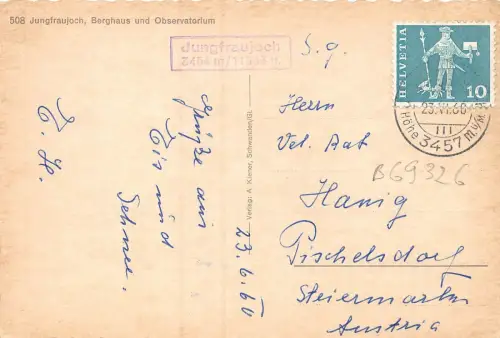 508 Jungfraujoch, Berghaus und Observatorium
Jungfraujoch
Grüsse aus
Eis und
Schnee.
23.6.60
Verlag: A. Kiener, Schwanden/Gl.
S. g.
Herrn
Hanig
Pischelsdorf
Steiermark
Austria
HELVETIA
10
23.VI.60
Höhe 3457 m ü/M
B69326